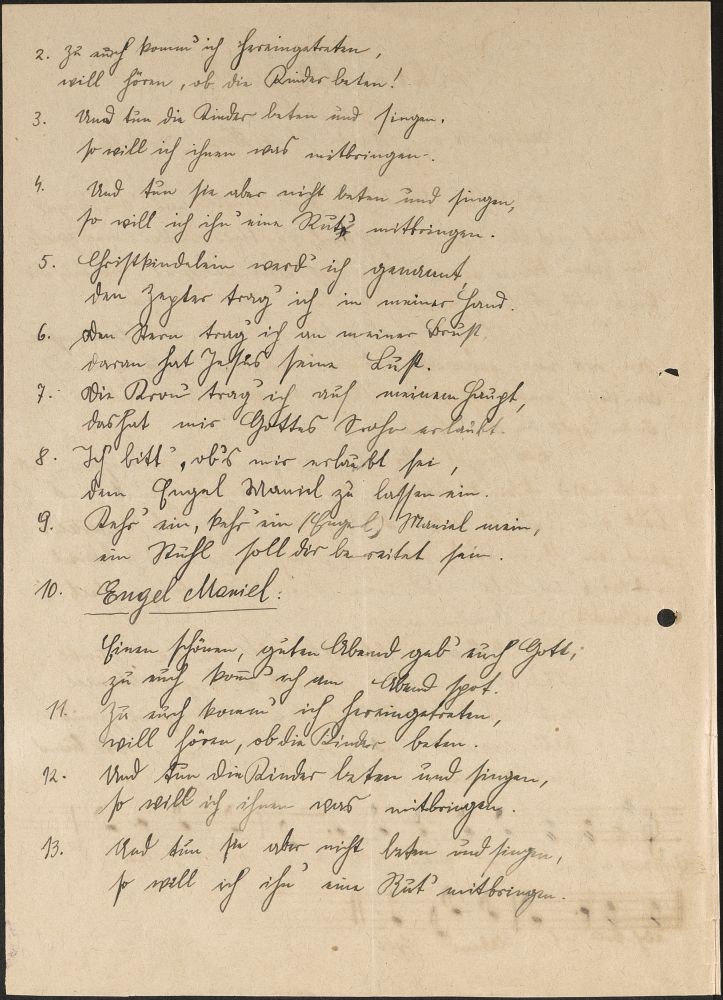 2. Zu euch komm' ich hereingetreten,
will hören, ob die Kinder beten!
3. Und tun die Kinder beten und singen,
so will ich ihnen was mitbringen.
4. Und tun sie aber nicht beten und singen,
so will ich ihn' eine Rut' mitbringen.
5. Christkindelein werd' ich genannt,
den Zepter trag' ich in meiner Hand.
6. Den Stern trag' ich an meiner Brust,
daran hat Jesus seine Lust.
7. Die Kron' trag' ich auf meinem Haupt,
das hat mir Gottes Sohn erlaubt.
8. Ich bitt', ob's mir erlaubt sei,
dem Engel Maniel zu lassen ein.
9. Kehr' ein, kehr' ein (Engel) Maniel mein,
ein Stuhl soll dir bereitet sein.
10. Engel Maniel:
Einen schönen, guten Abend geb' euch Gott;
zu euch komm' ich am Abend spot.
11. Zu euch komm' ich hereingetreten,
will hören, ob die Kinder beten.
12. Und tun die Kinder beten und singen,
so will ich ihnen was mitbringen.
13. Und tun sie aber nicht beten und singen,
so will ich ihn' eine Rut' mitbringen.